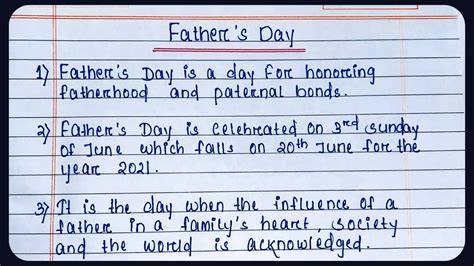 Father's Day
1) Father's Day is a day for honoring
fatherhood and paternal bonds.
2) Father's Day is celebrated on 3rd Sunday
of June which falls on 20th June for the
year 2021.
3) It is the day when the influence of a
father in a family's heart, society
and the world is acknowledged.